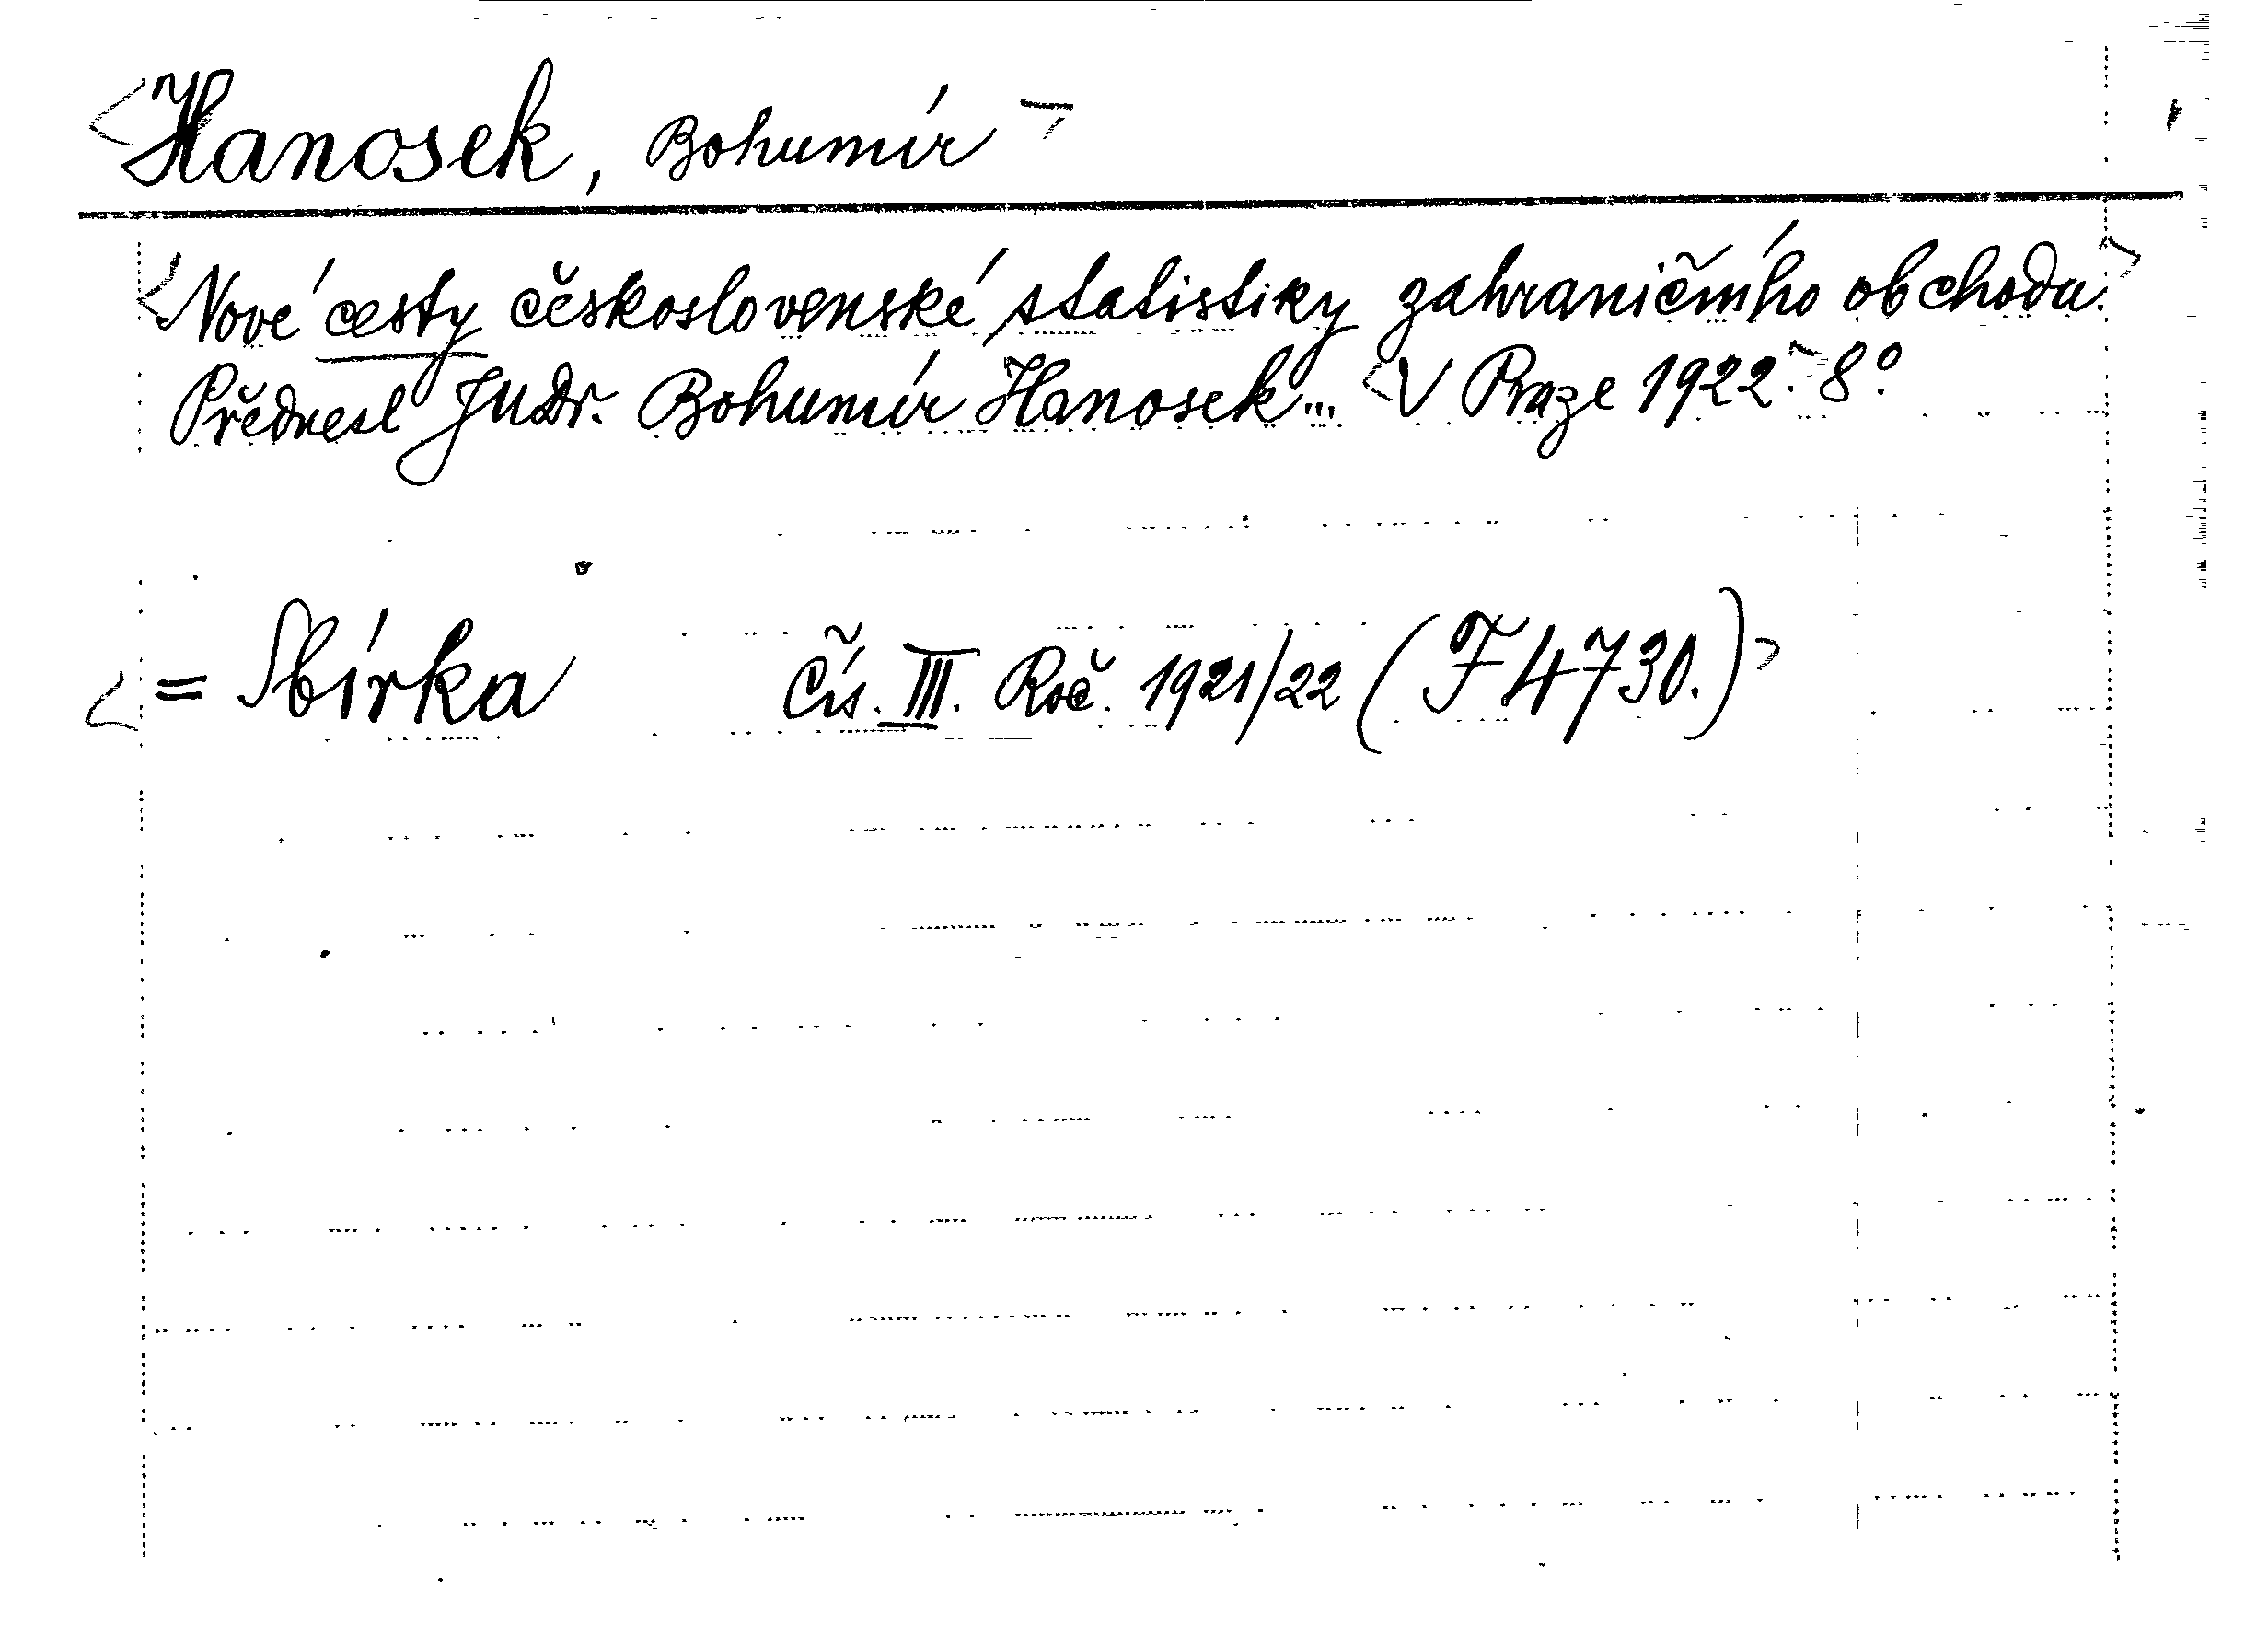 <Hanosek, Bohumír>
<Nové cesty československé statistiky zahraničního obchodu.>
Přednesl JUDr. Bohumír Hanosek... <V Praze 1922.> 8°.
<= Sbírka Čís. III. Roč. 1921/22 (F 4730.)>